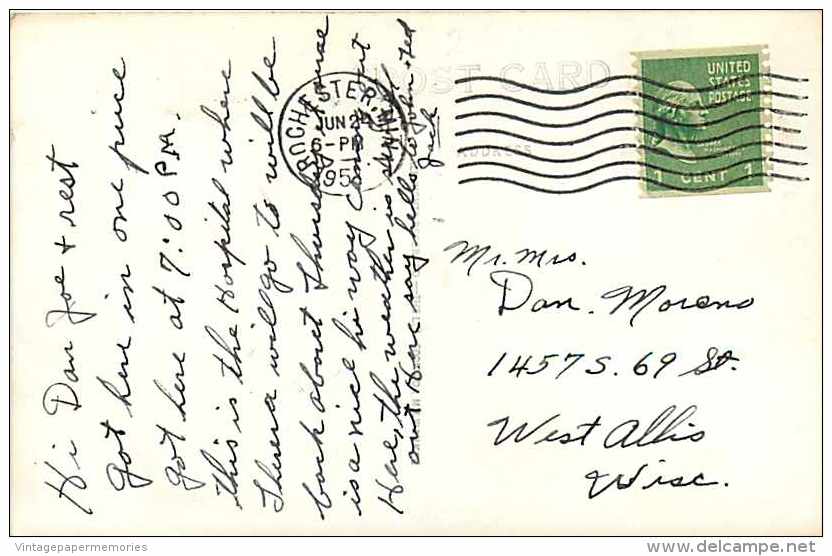 Hi Dan Joe + rest
Got here in one piece
got here at 7:00 P.M.
this is the Hospital where
Theresa will go to will be
back about Thursday
is a nice hi way
Here, the weather is
out Here say hello to John + Ted
Jack
POST CARD
ADDRESS
ROCHESTER, MINN
JUN 2
6-PM
195
UNITED
STATES
POSTAGE
1 CENT 1
Mr. Mrs.
Dan. Moreno
1457 S. 69 St.
West Allis
Wisc.
Vintagepapermemories
delcampe.net